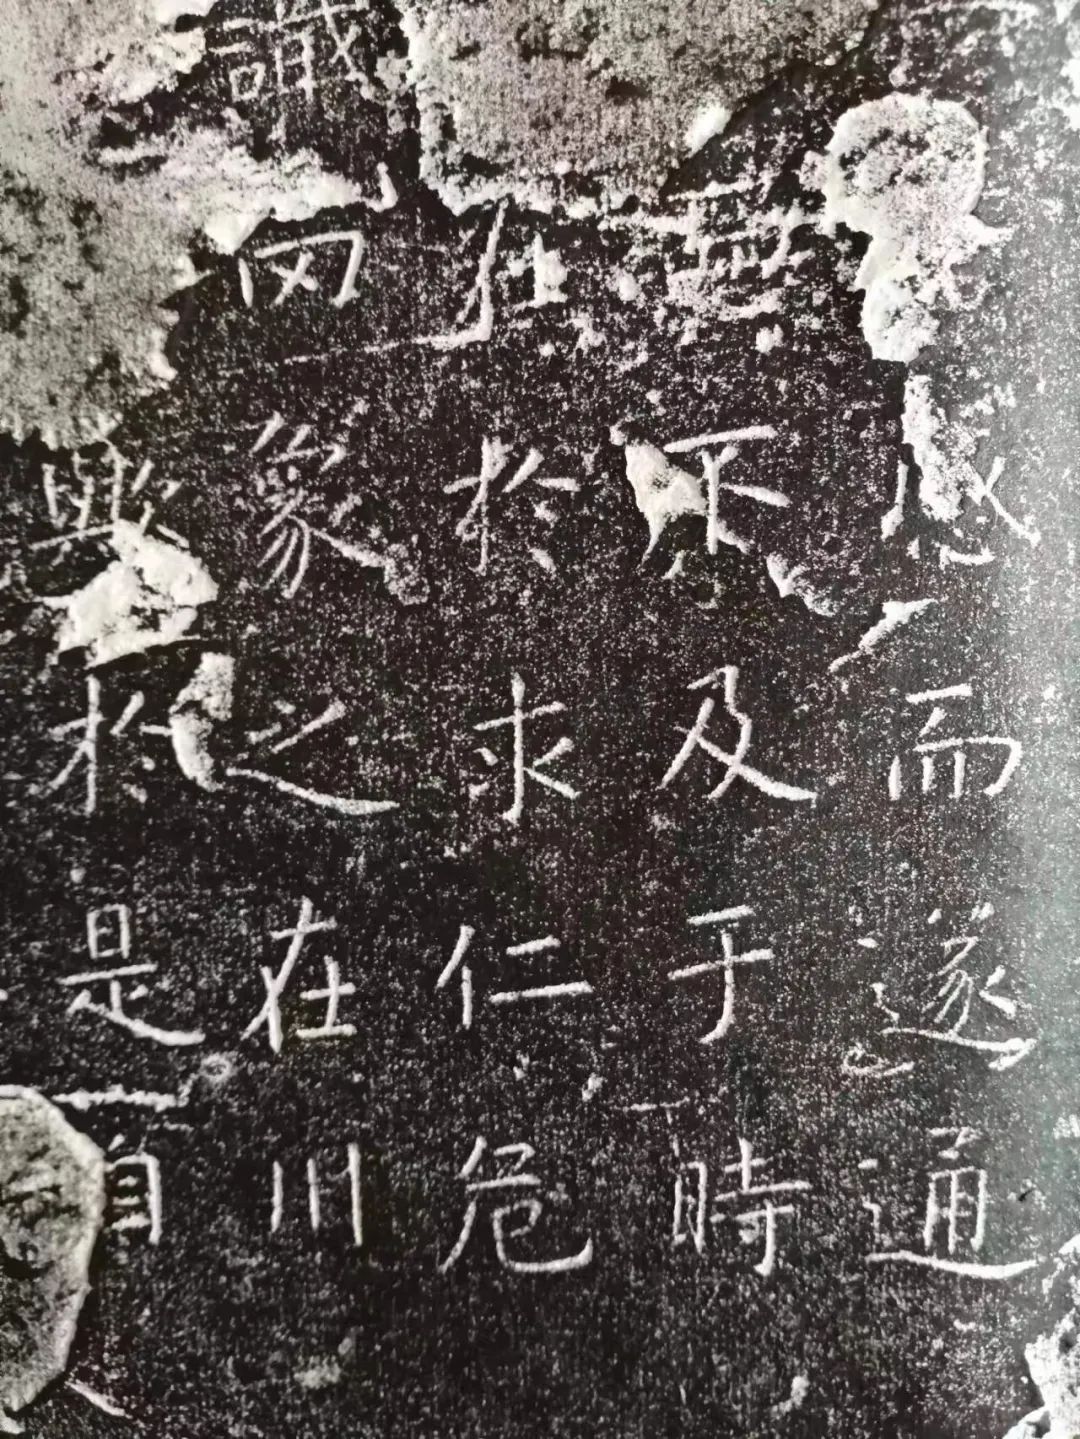 感而遂通
無不及于時
於求仁危
識罔象之在川
於是自